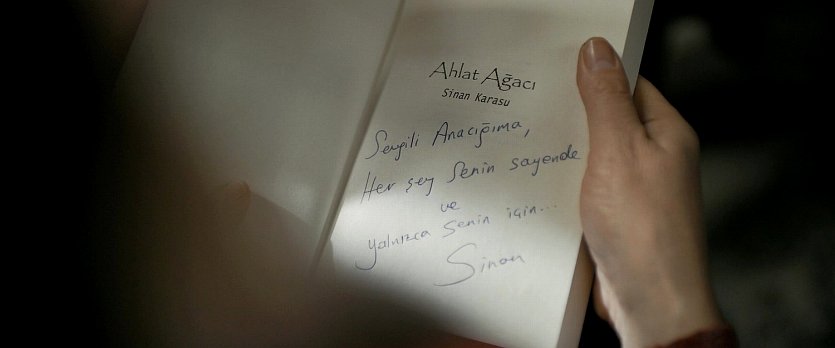 Ahlat Ağacı
Sinan Karasu
Sevgili Anacığıma,
Her şey Senin sayende
ve
yalnızca Senin için...
Sinan